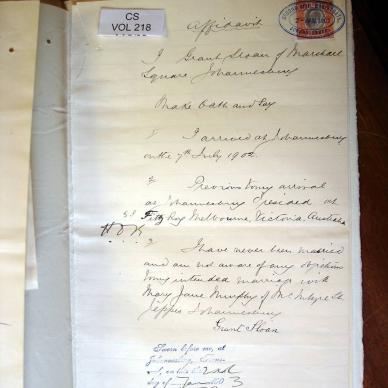 CS
VOL 218
Affidavit
I Grant Sloan of Marshall
Square Johannesburg
Make Oath and Say
I arrived at Johannesburg
on the 7th July 1902
2 Previous to my arrival
at Johannesburg I resided at
Fitz Roy Melbourne, Victoria, Australia
3 I have never been married
and am not aware of any objection
to my intended marriage with
Mary Jane Murphy of McIntyre St
Jeppes Johannesburg
Grant Sloan
Sworn before me, at
Johannesburg
this 2nd
day of Jan 3